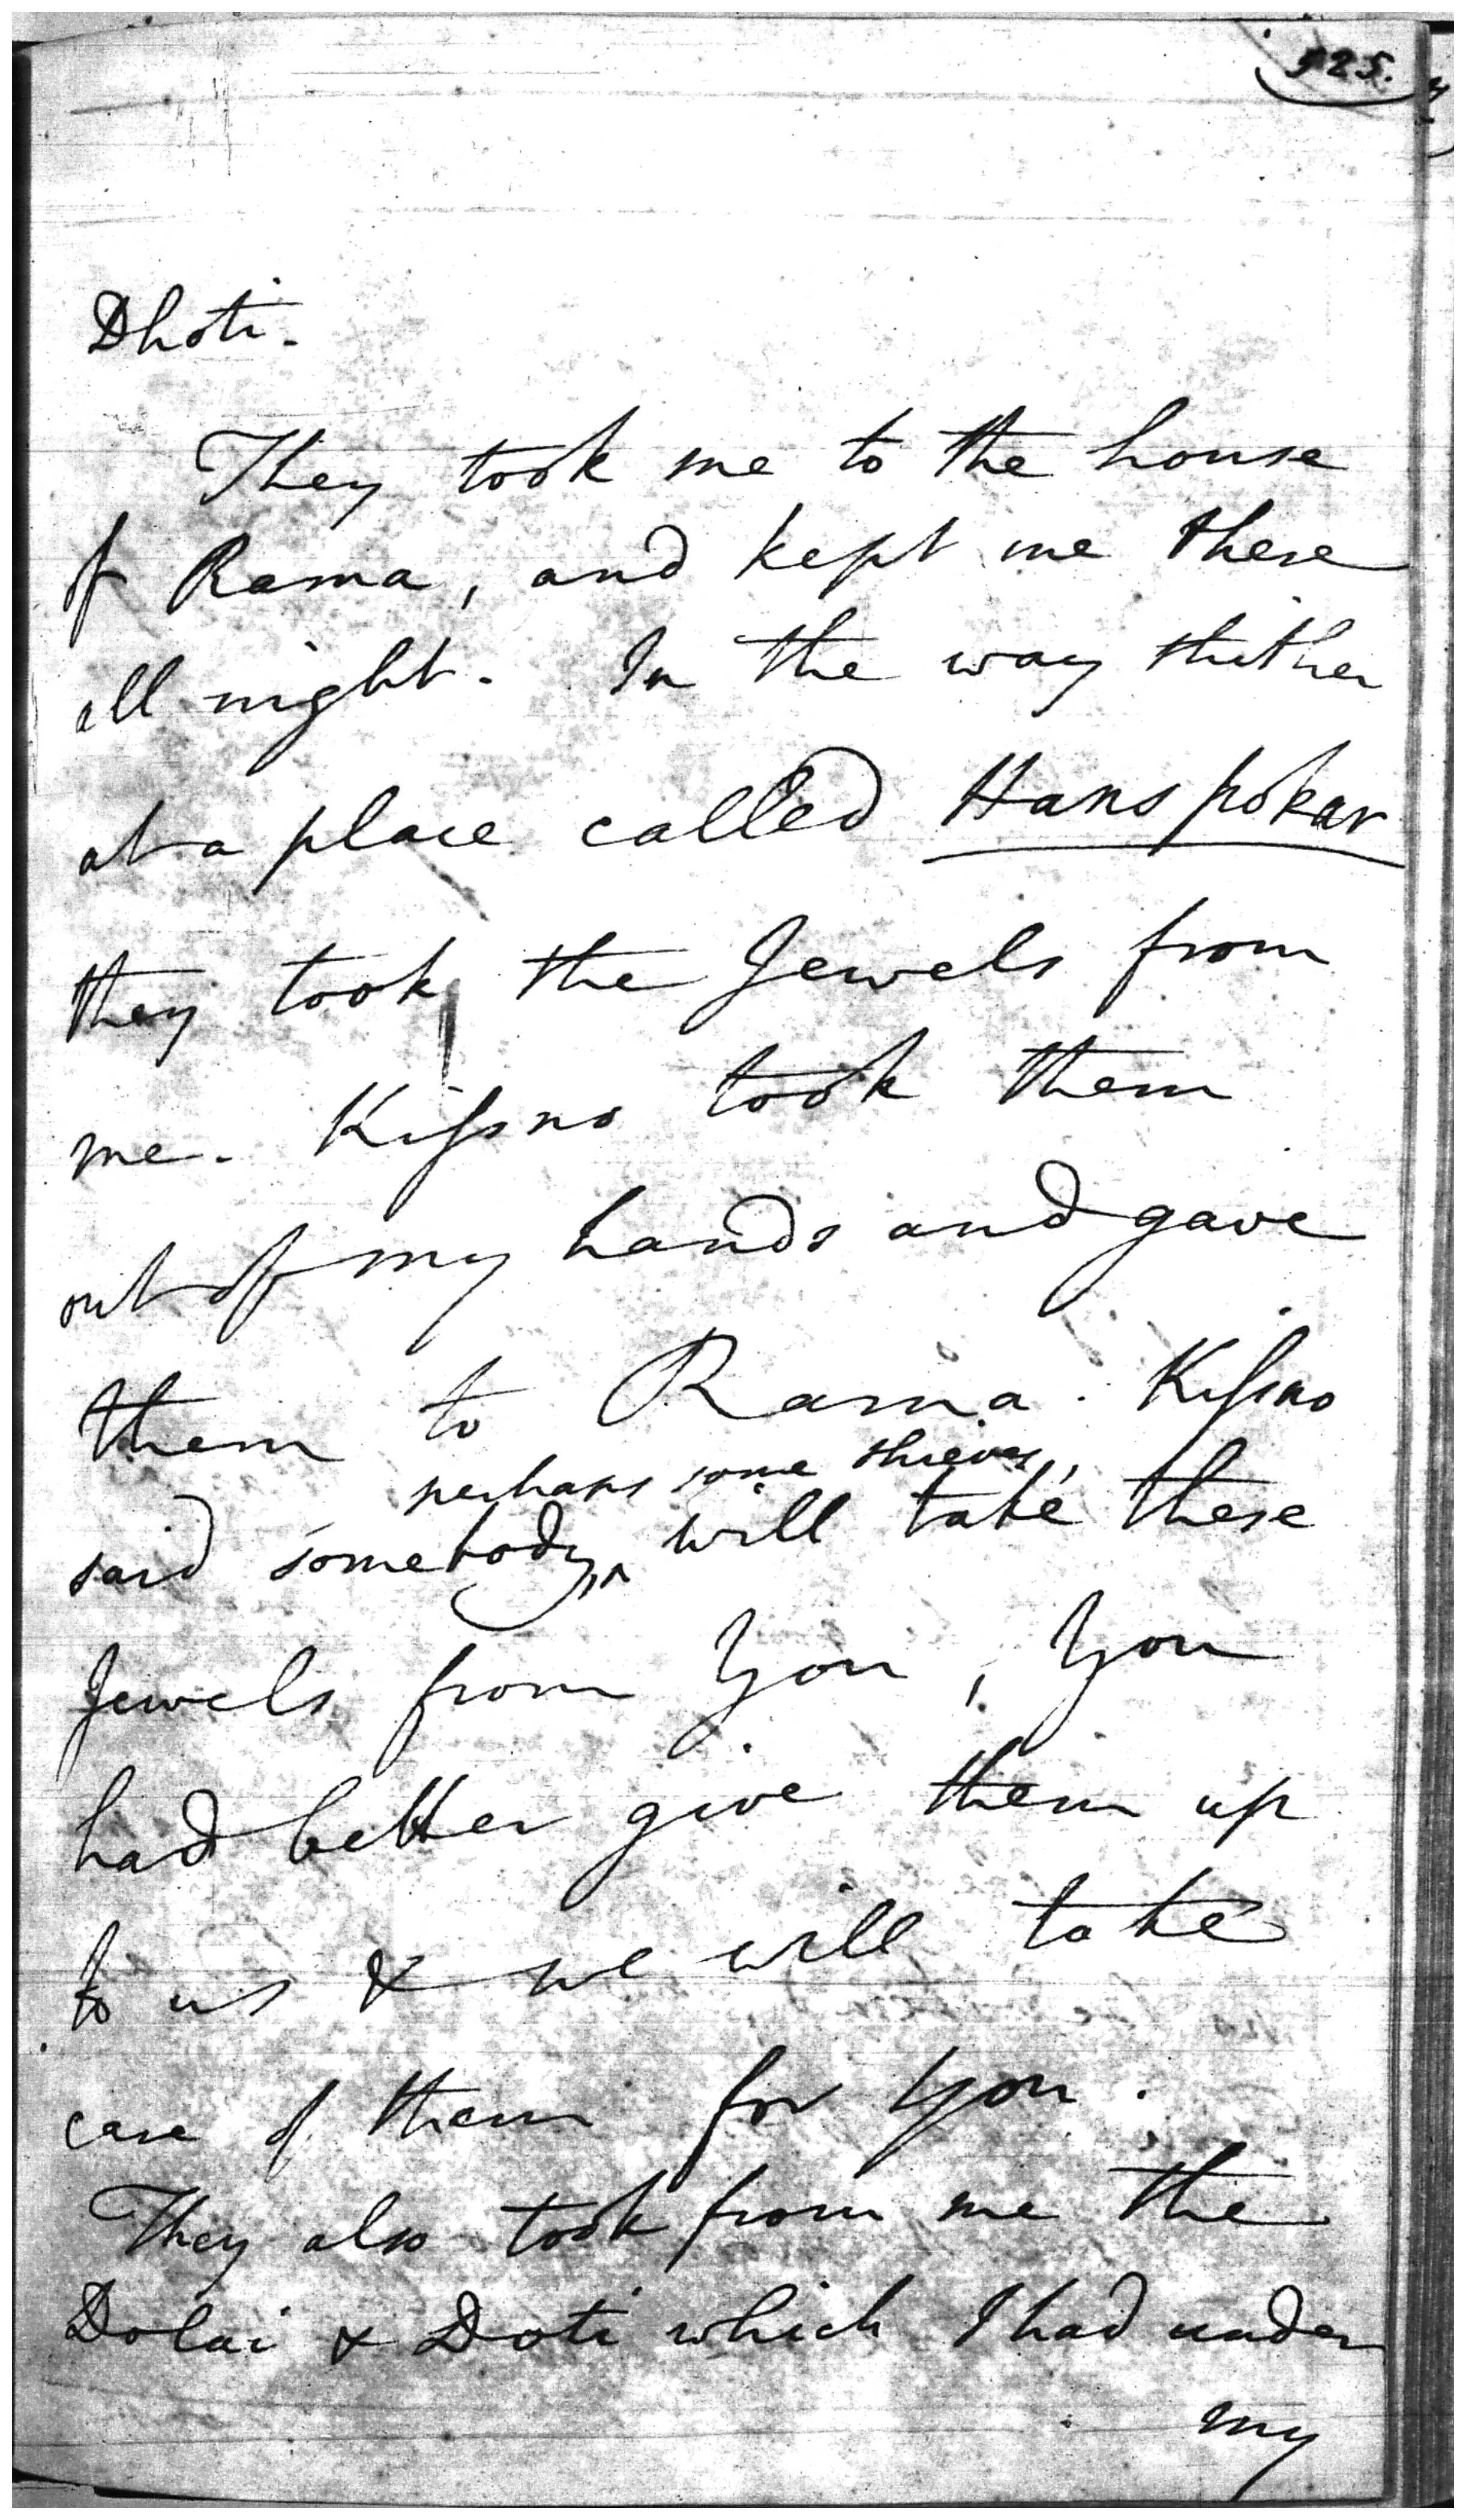 525.
Dhoti.
They took me to the house
of Rama, and kept me there
all night. In the way thither
at a place called Hanspokar
they took the Jewels from
me. Kissno took them
out of my hands and gave
them to Rama. Kissno
perhaps some thieves,
said somebody, ^ will take these
Jewels from You, You
had better give them up
to us & we will take
care of them for you.
They also took from me the
Dolai & Doti which I had under
my